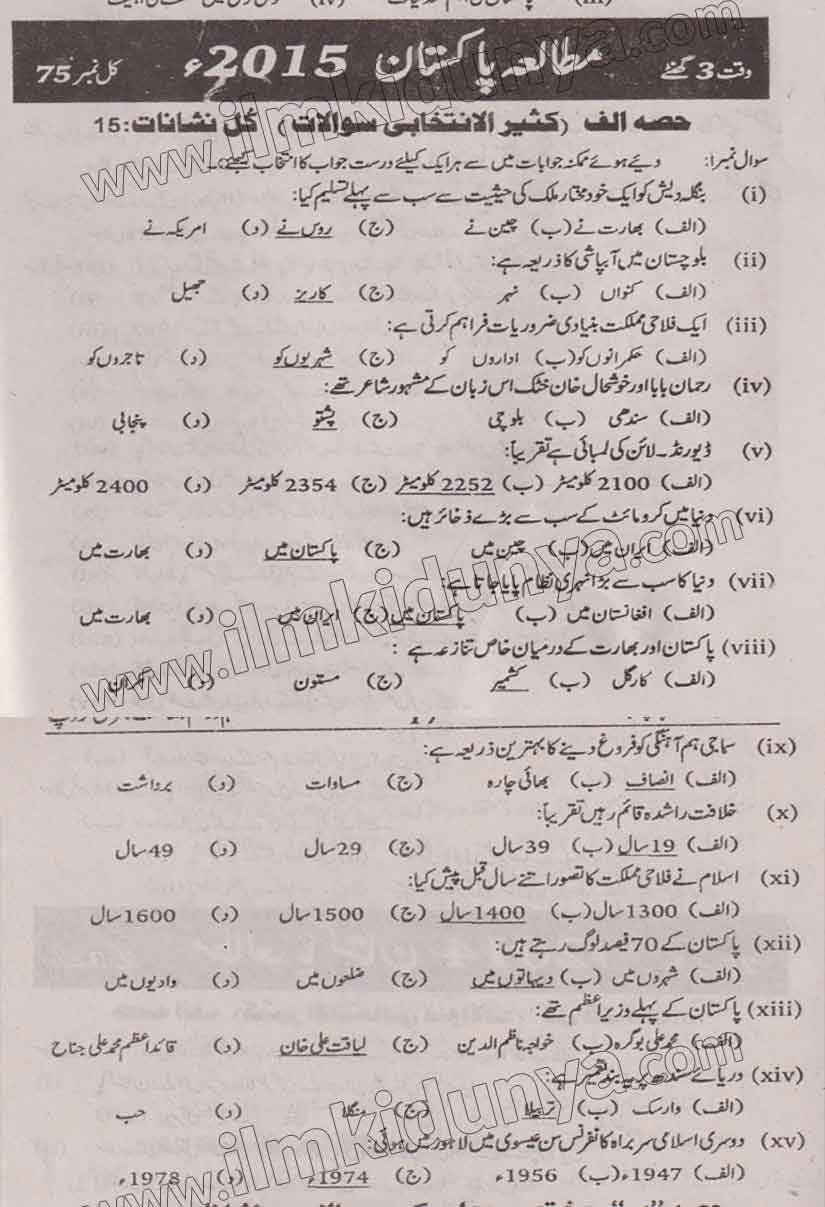 وقت 3 گھنٹے مطالعہ پاکستان 2015ء کل نمبر 75
حصہ الف (کثیر الانتخابی سوالات) کل نشانات: 15
سوال نمبر1: دیئے ہوئے ممکنہ جوابات میں سے ہر ایک کیلئے درست جواب کا انتخاب کیجئے۔
(i) بنگلہ دیش کو ایک خود مختار ملک کی حیثیت سے سب سے پہلے تسلیم کیا:
(الف) بھارت نے (ب) چین نے (ج) روس نے (د) امریکہ نے
(ii) بلوچستان میں آبپاشی کا ذریعہ ہے:
(الف) کنواں (ب) نہر (ج) کاریز (د) جھیل
(iii) ایک فلاحی مملکت بنیادی ضروریات فراہم کرتی ہے:
(الف) حکمرانوں کو (ب) اداروں کو (ج) شہریوں کو (د) تاجروں کو
(iv) رحمان بابا اور خوشحال خان خٹک اس زبان کے مشہور شاعر تھے:
(الف) سندھی (ب) بلوچی (ج) پشتو (د) پنجابی
(v) ڈیورنڈ۔لائن کی لمبائی ہے تقریباً:
(الف) 2100 کلومیٹر (ب) 2252 کلومیٹر (ج) 2354 کلومیٹر (د) 2400 کلومیٹر
(vi) دنیا میں کرومائٹ کے سب سے بڑے ذخائر ہیں:
(الف) ایران میں (ب) چین میں (ج) پاکستان میں (د) بھارت میں
(vii) دنیا کا سب سے بڑا نہری نظام پایا جاتا ہے:
(الف) افغانستان میں (ب) پاکستان میں (ج) ایران میں (د) بھارت میں
(viii) پاکستان اور بھارت کے درمیان خاص تنازعہ ہے :
(الف) کارگل (ب) کشمیر (ج) مستون (د) مکران
(ix) سماجی ہم آہنگی کو فروغ دینے کا بہترین ذریعہ ہے:
(الف) انصاف (ب) بھائی چارہ (ج) مساوات (د) برداشت
(x) خلافت راشدہ قائم رہیں تقریباً:
(الف) 19 سال (ب) 39 سال (ج) 29 سال (د) 49 سال
(xi) اسلام نے فلاحی مملکت کا تصور اتنے سال قبل پیش کیا:
(الف) 1300 سال (ب) 1400 سال (ج) 1500 سال (د) 1600 سال
(xii) پاکستان کے 70 فیصد لوگ رہتے ہیں:
(الف) شہروں میں (ب) دیہاتوں میں (ج) ضلعوں میں (د) وادیوں میں
(xiii) پاکستان کے پہلے وزیراعظم تھے:
(الف) محمد علی بوگرہ (ب) خواجہ ناظم الدین (ج) لیاقت علی خان (د) قائد اعظم محمد علی جناح
(xiv) دریائے سندھ پر یہ بند تعمیر ہے:
(الف) وارسک (ب) تربیلا (ج) منگلا (د) حب
(xv) دوسری اسلامی سربراہ کانفرنس سن عیسوی میں لاہور میں ہوئی:
(الف) 1947ء (ب) 1956ء (ج) 1974ء (د) 1978ء
www.ilmkidunya.com
www.ilmkidunya.com
www.ilmkidunya.com
www.ilmkidunya.com